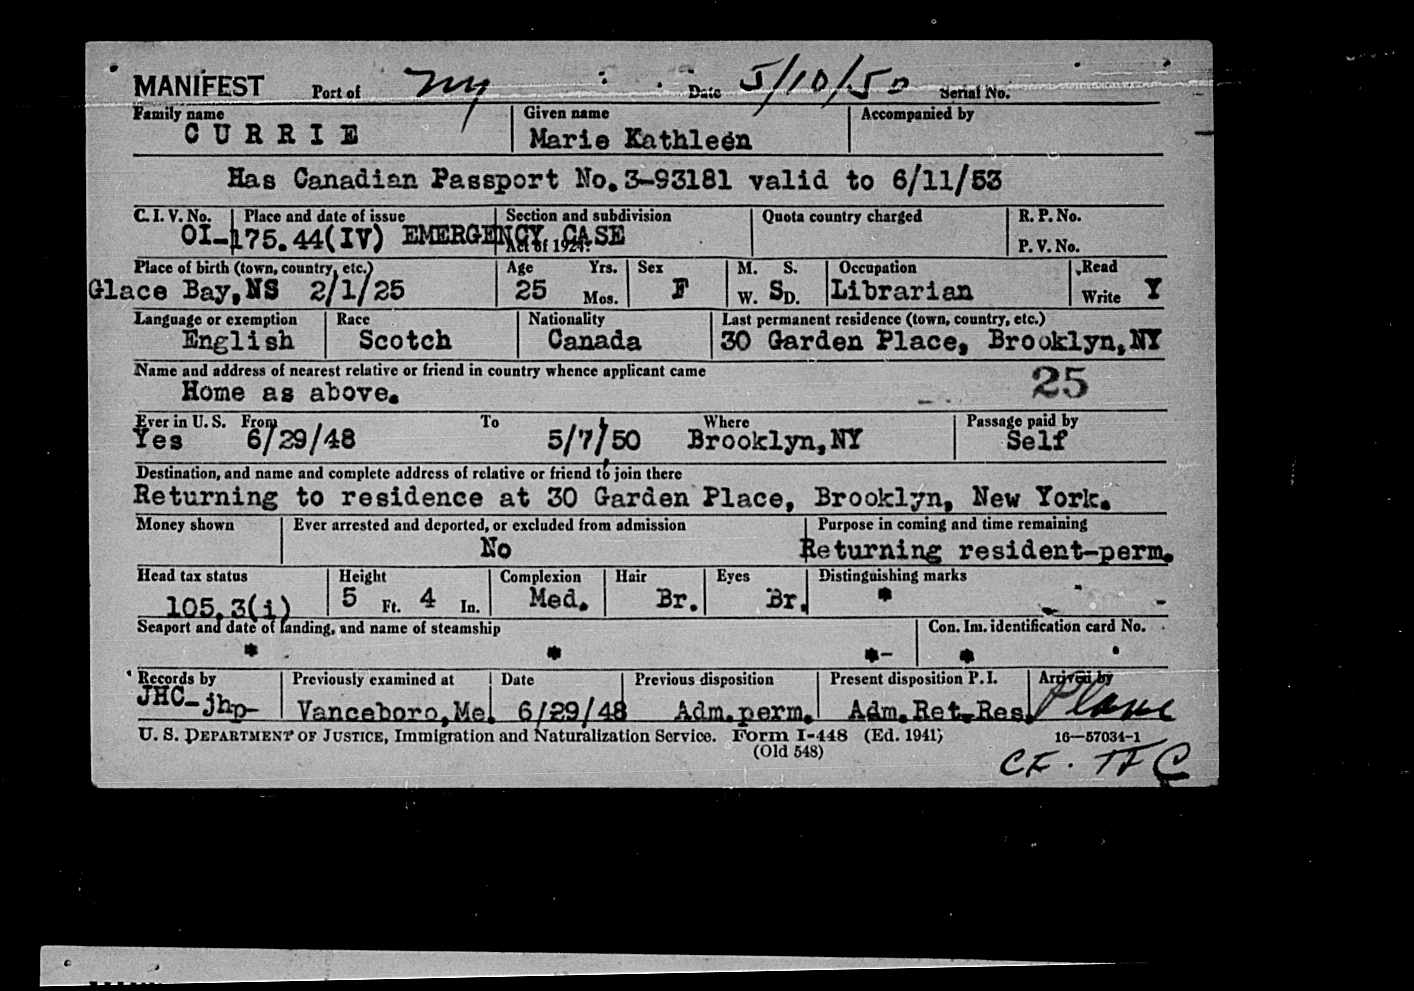 MANIFEST Port of NY Date 5/10/50 Serial No.
Family name Given name Accompanied by
CURRIE Marie Kathleen
Has Canadian Passport No.3-93181 valid to 6/11/53
C. I. V. No. Place and date of issue Section and subdivision Quota country charged R. P. No.
OI-175.44(IV) EMERGENCY CASE Act of 1924. P. V. No.
Place of birth (town, country, etc.) Age Yrs. Sex M. S. Occupation Read
Glace Bay,NS 2/1/25 25 Mos. F W. SD. Librarian Write Y
Language or exemption Race Nationality Last permanent residence (town, country, etc.)
English Scotch Canada 30 Garden Place, Brooklyn,NY
Name and address of nearest relative or friend in country whence applicant came
Home as above. 25
Ever in U. S. From To Where Passage paid by
Yes 6/29/48 5/7/50 Brooklyn,NY Self
Destination, and name and complete address of relative or friend to join there
Returning to residence at 30 Garden Place, Brooklyn, New York.
Money shown Ever arrested and deported, or excluded from admission Purpose in coming and time remaining
No Returning resident-perm.
Head tax status Height Complexion Hair Eyes Distinguishing marks
105.3(i) 5 Ft. 4 In. Med. Br. Br. *
Seaport and date of landing, and name of steamship Con. Im. identification card No.
* * *- *
Records by Previously examined at Date Previous disposition Present disposition P. I. Arrived by
JHC-jhp- Vanceboro,Me. 6/29/48 Adm.perm. Adm.Ret.Res. Plane
U. S. DEPARTMENT OF JUSTICE, Immigration and Naturalization Service. Form I-448 (Ed. 1941) 16—57034-1
(Old 548)